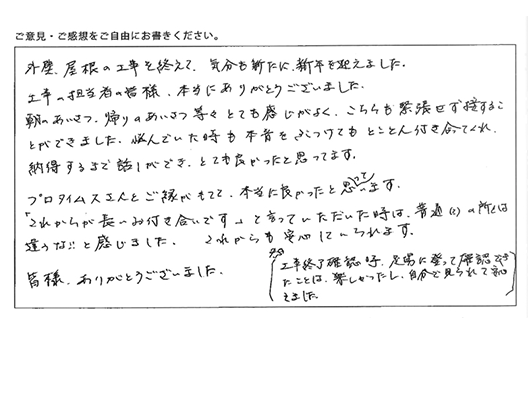 ご意見・ご感想をご自由にお書きください。
外壁、屋根の工事を終えて、気分も新たに、新年を迎えました。
工事の担当者の皆様、本当にありがとうございました。
朝のあいさつ、帰りのあいさつ等々とても感じがよく、こちらも緊張せず接するこ
とができました。悩んでいた時も本音をぶつけてもとことん付き合てくれ、
納得するまで話しができ、とても良かったと思ってます。
プロタイムズさんとご縁がもてて、本当に良かったと思って
います。
「これからが長いお付き合いです」と言っていただいた時は、普通の所とは
違うな!!と感じました。 これからも安心していられます。
皆様、ありがとうございました。
工事終了確認時、足場に登って確認でき
たことは、楽しかったし、自分で見られて
えました。